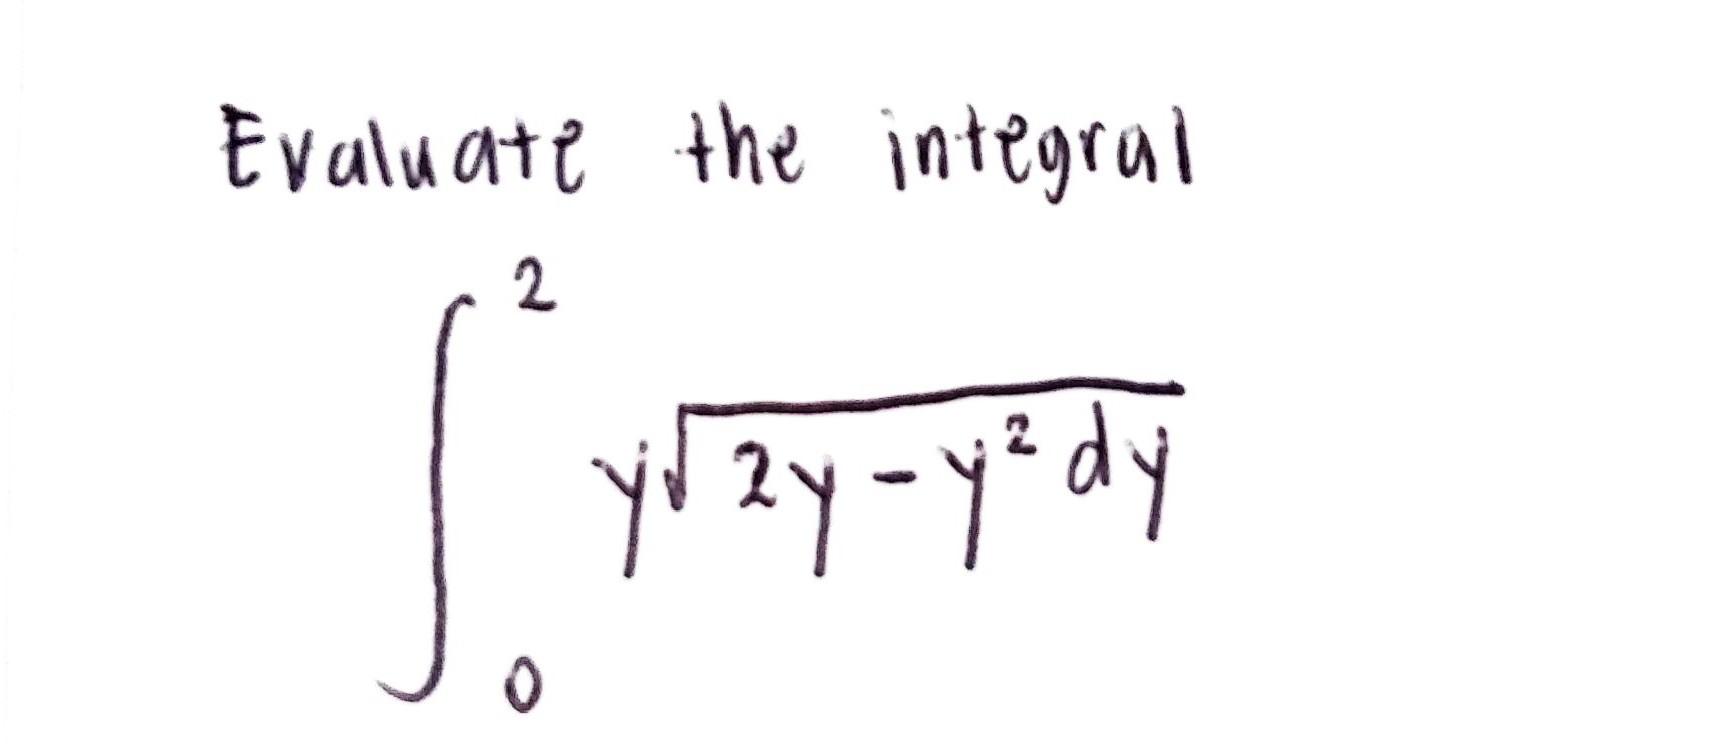 Evaluate the integral
∫₀² y√(2y - y² dy)